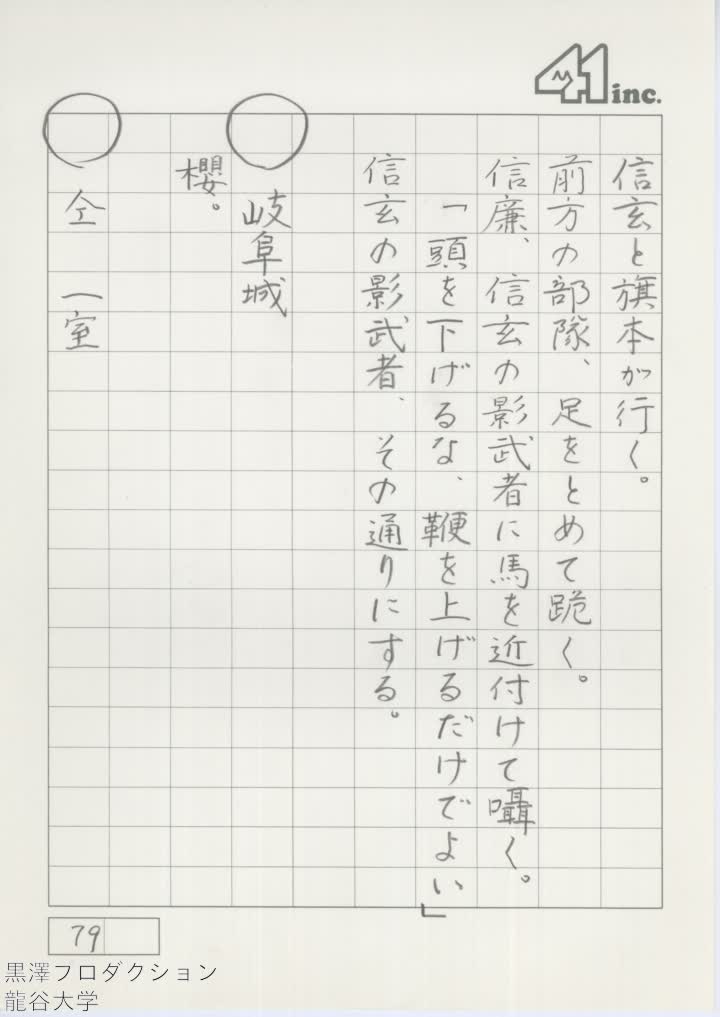 41 inc.
信玄と旗本が行く。
前方の部隊、足をとめて跪く。
信廉、信玄の影武者に馬を近付けて囁く。
「頭を下げるな、鞭を上げるだけでよい」
信玄の影武者、その通りにする。
○ 岐阜城
櫻。
○ 仝 一室
79
黒澤プロダクション
龍谷大学